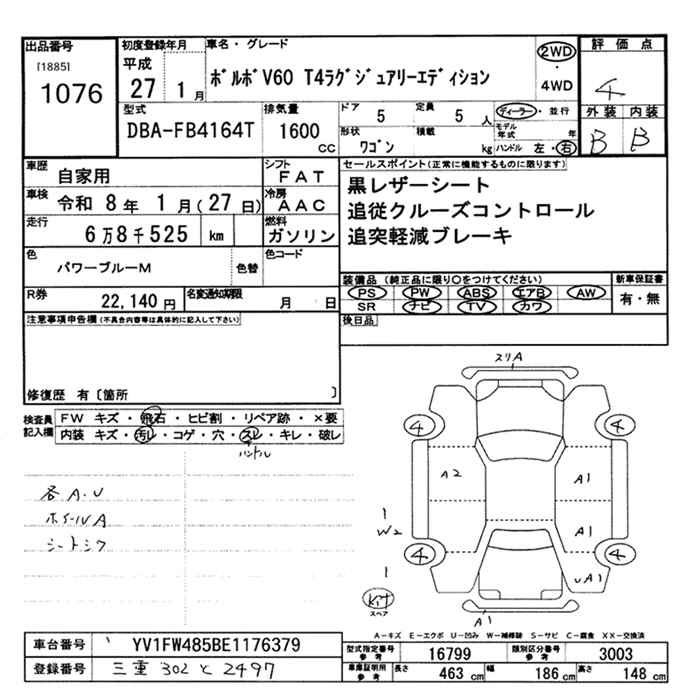 出品番号
[1885]
1076
初度登録年月
平成
27 1月
車名・グレード
ボルボV60 T4ラグジュアリーエディション
2WD
・
4WD
評価点
4
外装 内装
B B
型式
DBA-FB4164T
排気量
1600 cc
ドア 5
定員 5人
ディーラー・並行
モデル年式 年
形状 ワゴン
積載 kg
ハンドル 左・右
車歴 自家用
シフト FAT
車検 令和 8年 1月(27日)
冷房 AAC
走行 6万8千525 km
燃料 ガソリン
色 パワーブルーM
色替
色コード
R券 22,140円
名変通知期限 月 日
セールスポイント(正常に機能するものに限ります)
黒レザーシート
追従クルーズコントロール
追突軽減ブレーキ
装備品(純正品に限り○をつけてください)
PS PW ABS エアB AW
SR ナビ TV カワ
新車保証書
有・無
後日品
注意事項申告欄(不具合内容等は具体的に記入して下さい)
修復歴 有〔箇所 〕
検査員記入欄
FW キズ・飛石・ヒビ割・リペア跡・×要
内装 キズ・汚レ・コゲ・穴・スレ・キレ・破レ
ハンドル
各A.U
ホイールA
シートシワ
スリA
4 4
A2 A1
1
W2 A1
4 4
1
UA1
Kit
スペア
A1
A-キズ E-エクボ U-凹み W-補修跡 S-サビ C-腐食 XX-交換済
車台番号 YV1FW485BE1176379
登録番号 三重 302 と 2497
型式指定番号 参考 16799
類別区分番号 参考 3003
車庫証明用 参考 長さ 463cm 幅 186cm 高さ 148cm